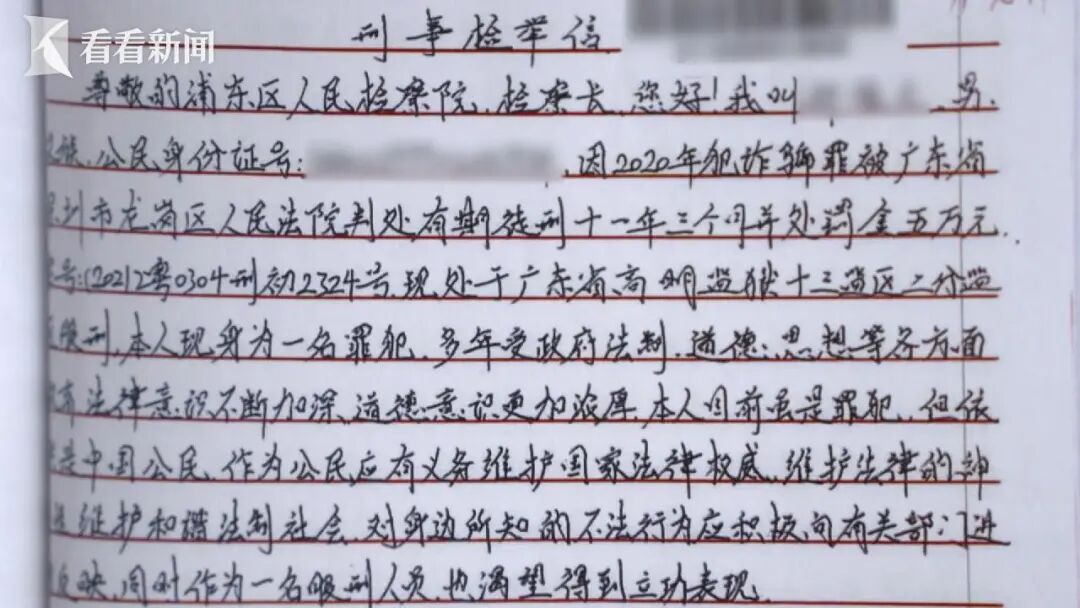 看看新闻
刑事检举信
尊敬的浦东区人民检察院、检察长、您好!我叫 、男、
族、公民身份证号: ,因2020年犯诈骗罪被广东省
圳市龙岗区人民法院判处有期徒刑十一年三个月并处罚金五万元.
号:(2021)粤0304刑初2324号.现处于广东省高明监狱十三监区二分监
服刑,本人现身为一名罪犯、多年受政府法制、道德、思想等各方面
法律意识不断加深、道德意识更加浓厚、本人目前虽是罪犯、但依
是中国公民、作为公民应有义务维护国家法律权威、维护法律的神
维护和谐法制社会、对身边所知的不法行为应积极向有关部门进
反映、同时作为一名服刑人员、也渴望得到立功表现.